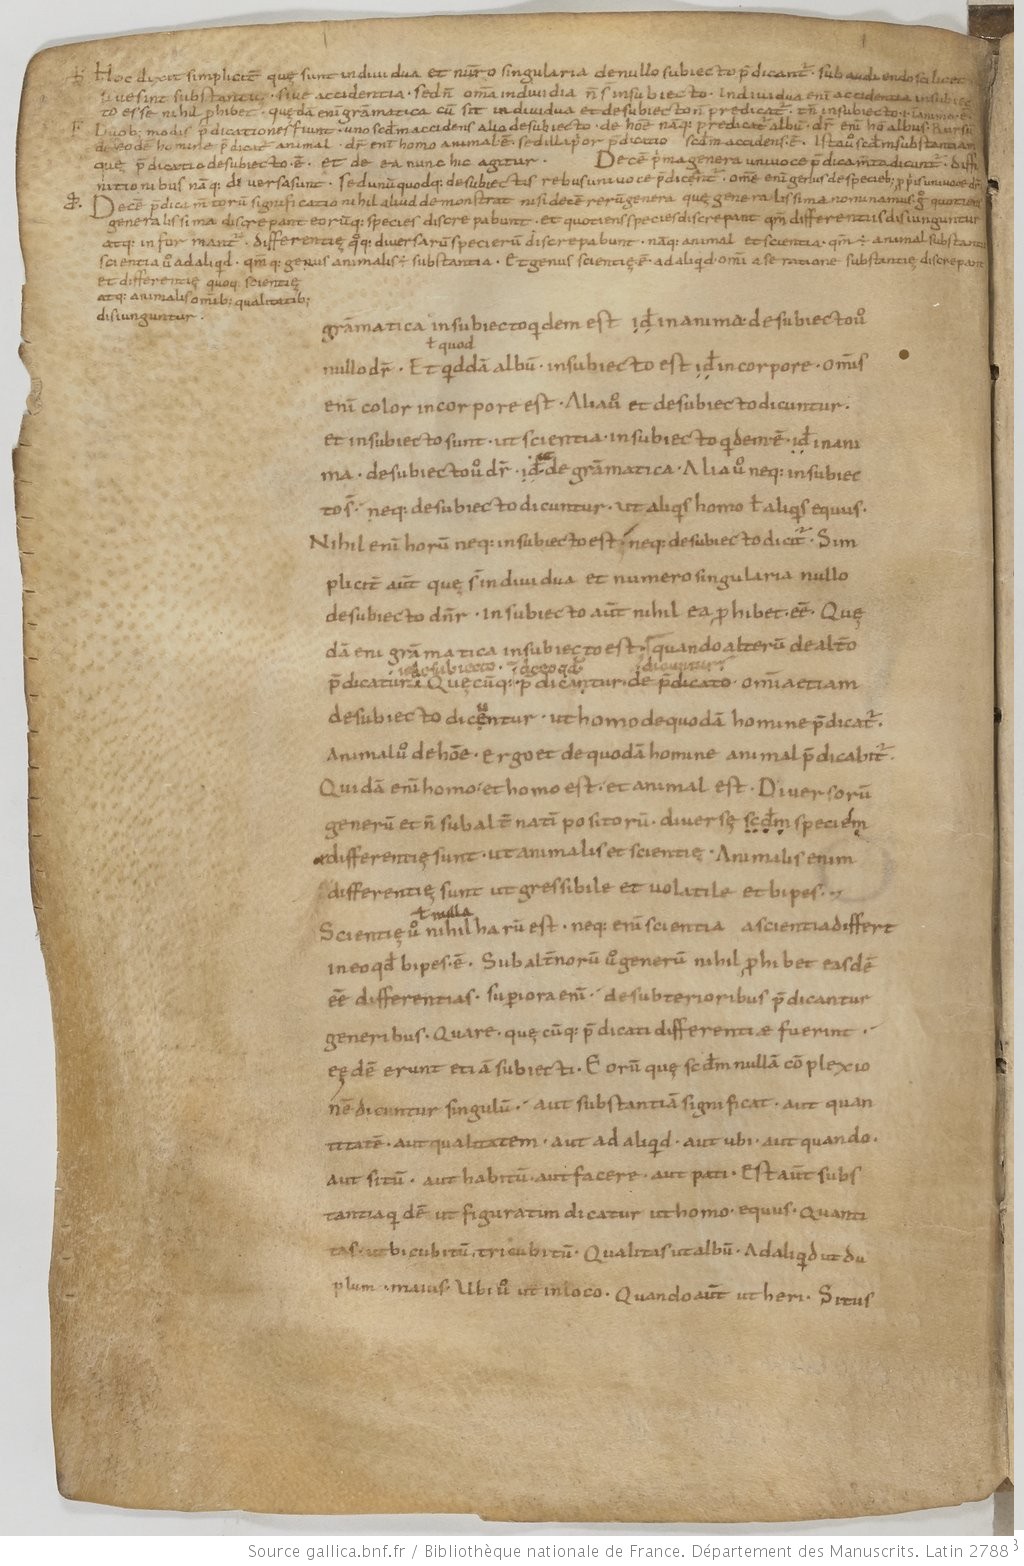 Hoc dixit simplicit̄ quę sunt indiuidua et num̄o singularia de nullo subiecto p̄dicant᷑. subaudiendo scilicet
siue sint substantię. siue accidentia. sed n̄ om̄a indiuidia n̄ s̄ insubiecto. Indiuidua eni accidentia insubiec
to esse nihil ꝓhibet. quędā eni grāmatica cū sit indiuidua et desubiecto n̄ predicat᷑. tn̄ insubiecto
Duob; modis p̄dicationes fiunt. uno scd̄m accidens alio desubiecto. de hōe naq; predicat᷑ albū. dr̄ eni hō albus. Rursū
de eodē homine p̄dicat᷑ animal. dr̄ eni homo animal ē. sed illa prior p̄dicatio scd̄m accidens ē. Ista uō scd̄m substantiam
quę p̄dicatio desubiecto ē. et de ea nunc hic agitur. Decē p̄ma genera uniuoce p̄dicam̄ta dicunt᷑. Diffi
nitionibus nāq; diuersa sunt. sed unū quodq; desubiectis rebus uniuoce p̄dicent᷑. om̄e eni genus despecieb;
Decē p̄dicam̄torū significatio nihil aliud demonstrat nisi decē rerū genera quę generalissima nominamus. quotiens
generalissima discrepant eorūq; species discrepabunt. et quotiens species discrepant qm̄ differentiis disiunguntur
atq; informant᷑. differentię qq; diuersarū specierū discrepabunt. naq; animal et scientia. qm̄ ÷ animal substantia
scientia uō ad aliqd. qm̄q; genus animalis ÷ substantia. Et genus scientię ē ad aliqd. om̄i a se ratione substantię discrepant
et differentię quoq scientię
atq; animalis om̄ib; qualitatib;
disiunguntur.
grāmatica insubiecto qdem est id̄ in anima: desubiecto uō
ł quod
nullo dr̄. Et qddā albū. insubiecto est id̄ incorpore. om̄is
eni color incorpore est. Alia uō et desubiecto dicuntur.
et insubiecto sunt. ut scientia. insubiecto qdem ē. id̄ in ani
ma. desubiecto uō dr̄. id̄ de grāmatica. Alia uō neq; insubiec
to s̄. neq; desubiecto dicuntur. ut aliqs homo ł aliqs equus.
Nihil eni horū neq; insubiecto est neq; desubiecto dicit᷑. Sim
plicit̄ aūt quę s̄ indiuidua et numero singularia nullo
desubiecto dn̄r. insubiecto aūt nihil ea ꝓhibet ēē. Quę
dā eni grāmatica insubiecto est. quando alterū de alt̄o
p̄dicatur. Quęcūq; p̄dicantur. de p̄dicato. om̄ia etiam
desubiecto dicentur. ut homo de quodā homine p̄dicat᷑.
Animal uō de hōe. ergo et de quodā homine animal p̄dicabit᷑.
Quidā eni homo. et homo est. et animal est. Diuersorū
generū et n̄ subalt̄natī positorū. diuersę scd̄m speciem
differentię sunt. ut animalis et scientię. Animalis enim
differentię sunt ut gressibile et uolatile et bipes.
ł nulla
Scientię uō nihil harū est. neq; eni scientia a scientia differt
in eo qd̄ bipes ē. Subalt̄norū uō generū nihil ꝓhibet easdē
ēē differentias. superiora eni. de subterioribus p̄dicantur
generibus. Quare. quęcūq; p̄dicati differentiae fuerint.
eędē erunt etiā subiecti. Eorū quę scd̄m nullā cōplexio
nē dicuntur singulū. aut substantiā significat. aut quan
titatē. aut qualitatem. aut ad aliqd. aut ubi. aut quando.
aut sitū. aut habitū. aut facere. aut pati. Est aūt subs
tantia qdē ut figuratim dicatur ut homo. equus. Quanti
tas. ut bicubitū, tricubitū. Qualitas ut albū. Ad aliqd ut du
plum. maius. Ubi uō ut in loco. Quando aūt ut heri. Situs
Source gallica.bnf.fr / Bibliothèque nationale de France. Département des Manuscrits. Latin 2788